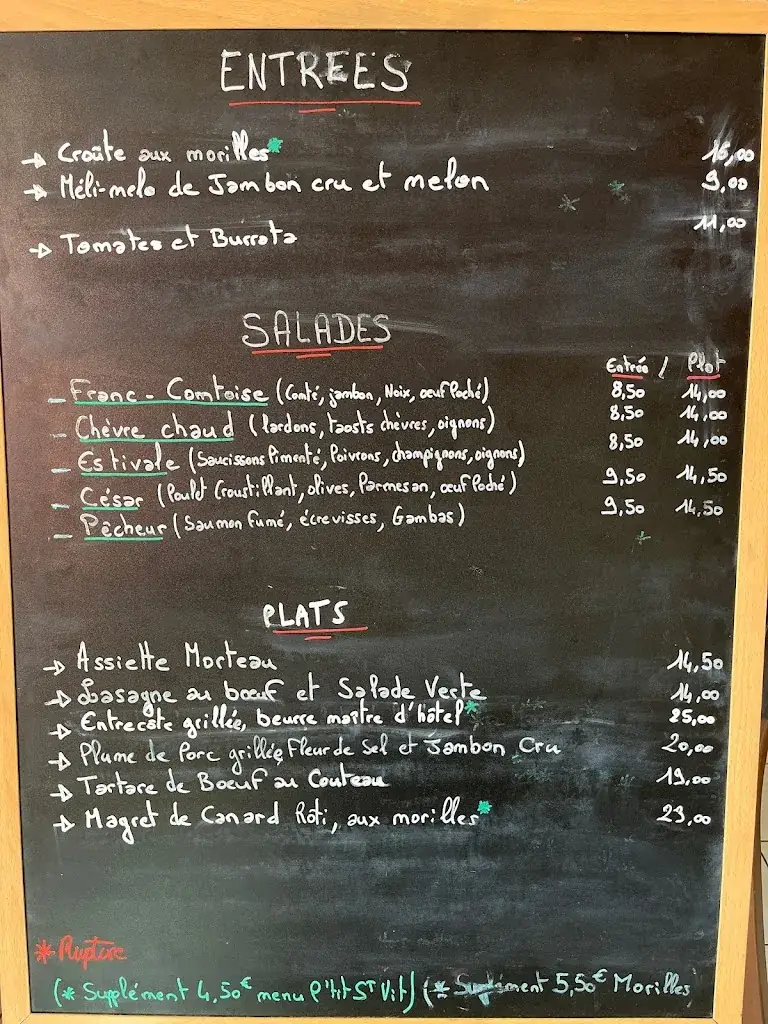 ENTREES
→ Croûte aux morilles* 16,00
→ Méli-melo de Jambon cru et melon 9,00
→ Tomates et Burrata 11,00
SALADES
Entrée / Plat
– Franc-Comtoise (Comté, jambon, Noix, œuf Poché) 8,50 14,00
– Chèvre chaud (lardons, toasts chèvres, oignons) 8,50 14,00
– Estivale (Saucissons Pimenté, Poivrons, champignons, oignons) 8,50 14,00
– César (Poulet Croustillant, olives, Parmesan, œuf Poché) 9,50 14,50
– Pêcheur (Saumon fumé, écrevisses, Gambas) 9,50 14,50
PLATS
→ Assiette Morteau 14,50
→ Lasagne au bœuf et Salade Verte 14,00
→ Entrecôte grillée, beurre maître d'hôtel* 25,00
→ Plume de Porc grillée Fleur de Sel et Jambon Cru 20,00
→ Tartare de Bœuf au Couteau 19,00
→ Magret de Canard Rôti, aux morilles* 23,00
* Rupture
(* Supplément 4,50€ menu P'tit ST Vit) (* Suplément 5,50€ Morilles)